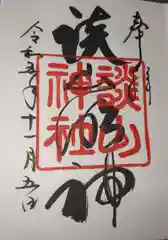 奉拝
談山
神社
神
令和五年十一月五日